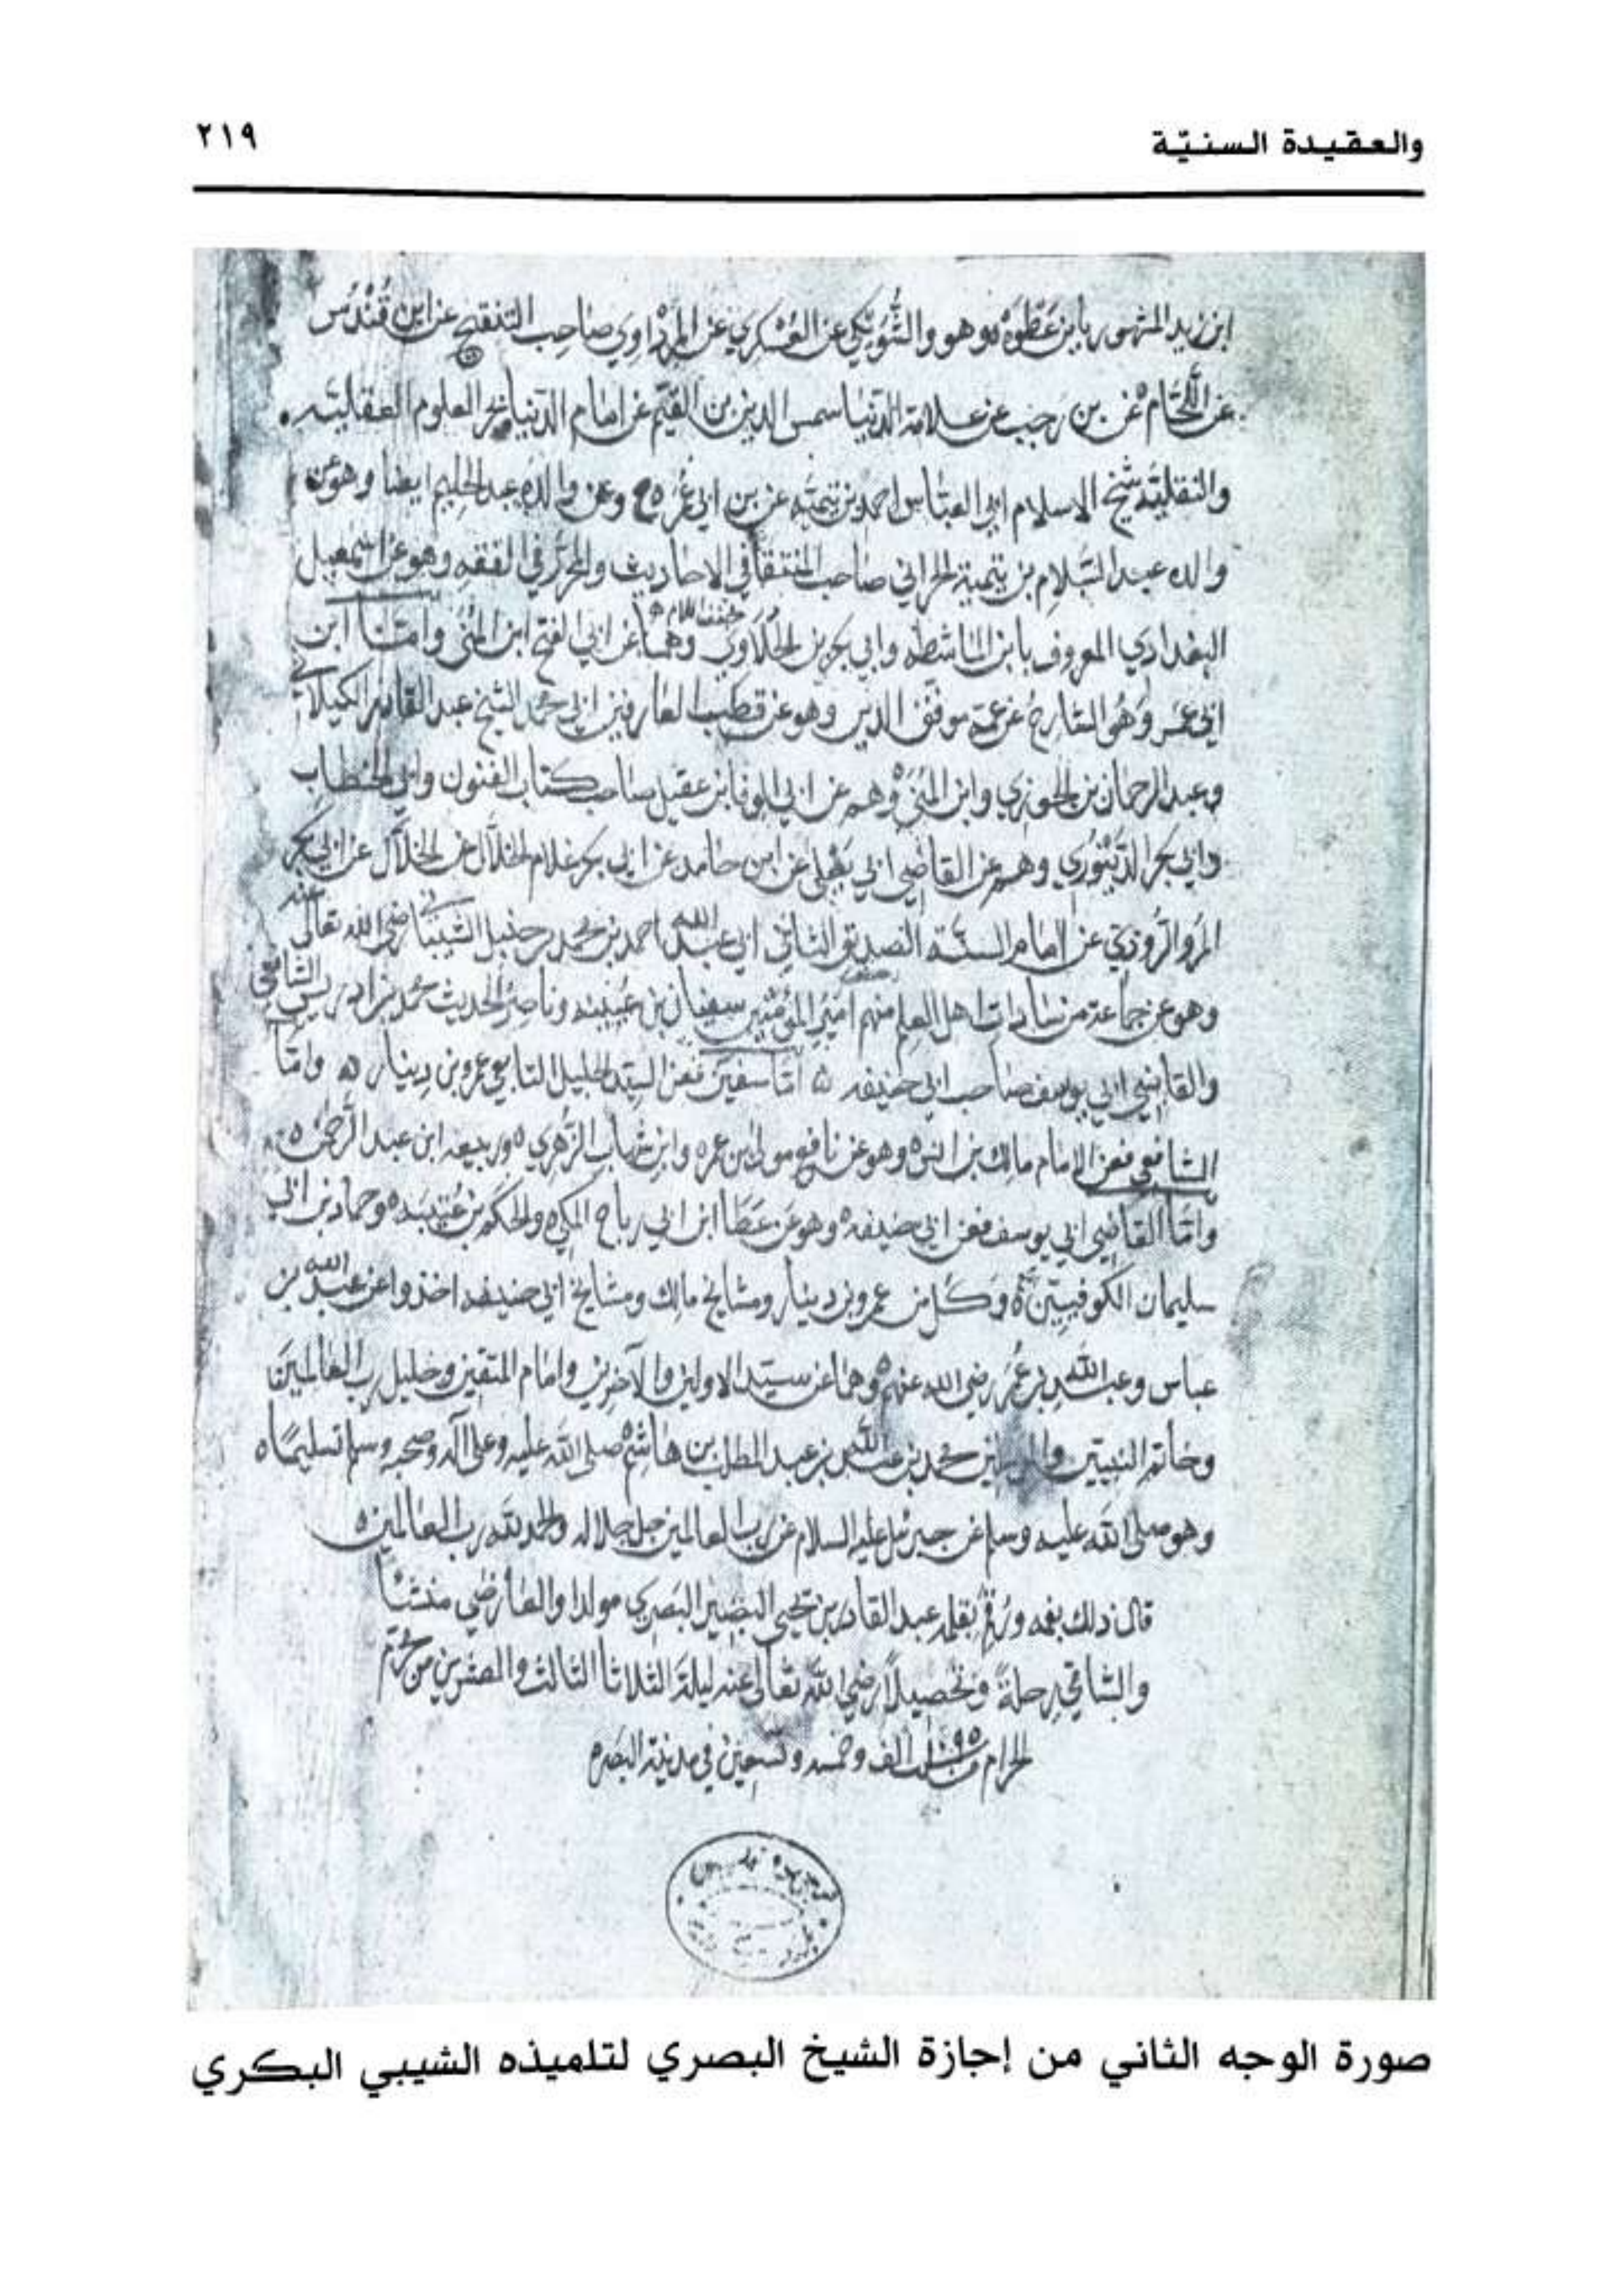 والعقيدة السنيّة
٢١٩
ابن زيد المشهور بابن عَطْوَه وهو والشُّوَيْكي عن العُسْكري عن المرْداوي صاحب التنقيح عن ابن قُنْدُس
عن اللحّام عن بن رجب عن علامة الدّنيا شمس الدين بن القيّم عن امام الدّنيا بحر العلوم العقليّه
والنقليّه شيخ الاسلام ابي العبّاس احمد بن تيميّه عن بن ابي عُمَر وعن والده عبد الحليم ايضا وهو عن
والده عبد السّلام بن تيمية الحراني صاحب المنتقا في الاحاديث والمحرّر في الفقه وهو عن اسمعيل
البغدادي المعروف بابن الماشطه وابي بكر بن الحَلَاوي وهما عن ابي الفتح ابن المَنّي وامّا ابن
خفف اللام
ابي عمر وهو الشارح عن عمّه موفق الدين وهو عن قطب العارفين ابي محمد الشيخ عبد القادر الكيلاني
وعبد الرحمان بن الجوزي وابن المَنّي وهم عن ابي الوفا ابن عقيل صاحب كتاب الفنون وابي الخطاب
وابي بكر الدّيْنوري وهم عن القاضي ابي يَعْلى عن ابن حامد عن ابي بكر غلام الخلّال عن الخلّال عن ابي بكر
المرُّوْذي عن امام السنّة الصديق الثاني ابي عبد الله احمد بن محمد بن حنبل الشيباني رضي الله تعالى عنه
وهو عن جماعة من سادات اهل العلم منهم امير المؤمنين سفيان بن عيينه وناصر الحديث محمد بن ادريس الشافعي
والقاضي ابي يوسف صاحب ابي حنيفه امّا سفين فعن السيّد الجليل التابعي عمرو بن دينار وامّا
الشافعي فعن الامام مالك بن انس وهو عن نافع مولى بن عمر وابن شهاب الزّهري وربيعه ابن عبد الرحمن
وامّا القاضي ابي يوسف فعن ابي حنيفه وهو عن عَطَا ابن ابي رباح المكي والحكم بن عُتيبَه وحماد بن ابي
سليمان الكوفيين وكل من عمرو بن دينار ومشايخ مالك ومشايخ ابي حنيفه اخذوا عن عبد الله بن
عباس وعبد الله بن عُمَر رضي الله عنهم وهما عن سيّد الاولين والآخرين وامام المتقين وخليل رب العالمين
وخاتم النبيّين محمد بن عبد الله بن عبد المطلب بن هاشم صلى الله عليه وعلى آله وصحبه وسلم تسليمًا
وهو صلى الله عليه وسلم عن جبرئيل عليه السلام عن رب العالمين جل جلاله والحمد لله رب العالمين
قال ذلك بفمه ورقم بقلمه عبد القادر بن يحيى البصير البَصري مولدا والعارضي منشئًا
والشامي رحلةً وتحصيلًا رضي الله تعالى عنه ليلة الثلاثا الثالث والعشرين من محرّم
الحرام سنة ١٠٩٥ الف وخمسه وتسعين في مدينة البصره
صورة الوجه الثاني من إجازة الشيخ البصري لتلميذه الشيبي البكري